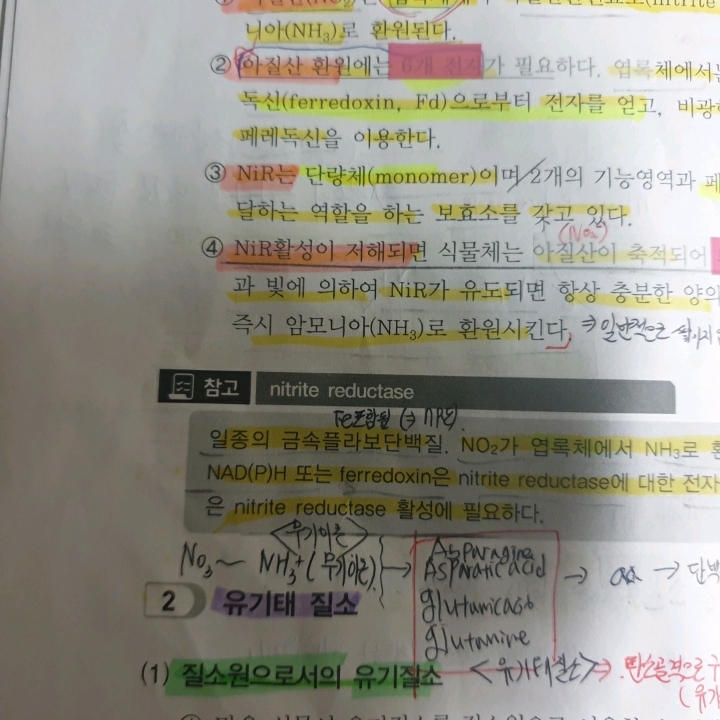 니아(NH₃)로 환원된다.
② 아질산 환원에는 6개 전자가 필요하다. 엽록체에서는
독신(ferredoxin, Fd)으로부터 전자를 얻고, 비광
페레독신을 이용한다.
③ NiR는 단량체(monomer)이며 2개의 기능영역과 페
달하는 역할을 하는 보효소를 갖고 있다.
(NO₂)
④ NiR활성이 저해되면 식물체는 아질산이 축적되어
과 빛에 의하여 NiR가 유도되면 항상 충분한 양의
즉시 암모니아(NH₃)로 환원시킨다. ⇒ 일반적으로
참고 nitrite reductase
Fe포함됨
일종의 금속플라보단백질. NO₂가 엽록체에서 NH₃로 환
NAD(P)H 또는 ferredoxin은 nitrite reductase에 대한 전자
은 nitrite reductase 활성에 필요하다.
<무기이온>
NO₃~ NH₄⁺(무기이온) → Asparagine
Asparatic acid → aa → 단백
glutamic acid
glutamine
2 유기태 질소
(1) 질소원으로서의 유기질소 <유기태질소> ⇒ 탄소골격으로 구
(유기